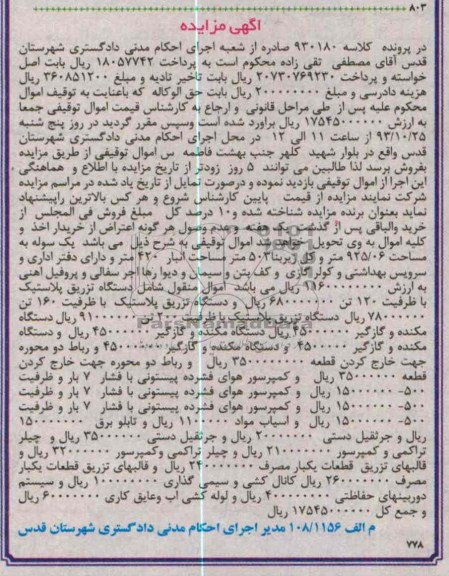 ۸۰۳
آگهی مزایده
در پرونده کلاسه ۹۳۰۱۸۰ صادره از شعبه اجرای احکام مدنی دادگستری شهرستان
قدس آقای مصطفی تقی زاده محکوم است به پرداخت ۱۸۰۵۷۷۴۲ ریال بابت اصل
خواسته و پرداخت ۲۰۷۳۰۷۶۹۲۳۰ ریال بابت تاخیر تادیه و مبلغ ۳۶۰۸۵۱۲۰۰ ریال
هزینه دادرسی و مبلغ ۲۰۰۰۰۰۰۰۰ ریال بابت حق الوکاله که باعنایت به توقیف اموال
محکوم علیه پس از طی مراحل قانونی و ارجاع به کارشناس قیمت اموال توقیفی جمعا
به ارزش ۱۷۵۴۵۰۰۰۰۰۰ ریال براورد شده است وسپس مقرر گردید در روز پنج شنبه
۹۳/۱۰/۲۵ از ساعت ۱۱ الی ۱۲ در محل اجرای احکام مدنی دادگستری شهرستان
قدس واقع در بلوار شهید کلهر جنب بهشت فاطمه س اموال توقیفی از طریق مزایده
بفروش برسد لذا طالبین می توانند ۵ روز زودتر از تاریخ مزایده با اطلاع و هماهنگی
این اجرا از اموال توقیفی بازدید نموده و درصورت تمایل از تاریخ یاد شده در مراسم مزایده
شرکت نمایند مزایده از قیمت پایین کارشناس شروع و هر کس بالاترین راپیشنهاد
نماید بعنوان برنده مزایده شناخته شده و۱۰ درصد کل مبلغ فروش فی المجلس از
خرید والباقی پس از گذشت یک هفته و عدم وصول هر گونه اعتراض از خریدار اخذ و
کلیه اموال به وی تحویل خواهد شد اموال توقیفی به شرح ذیل می باشد یک سوله به
مساحت ۹۲۵/۰۶ متر و کل زیربنا۵۰۳ متر مساحت انبار ۴۲۰ متر و دارای دفتر اداری و
سرویس بهداشتی و کولر گازی و کف بتن و سیمان و دیوا رها آجر سفالی و پروفیل آهنی
به ارزش ۱۱۶۰۰۰۰۰۰۰۰ ریال می باشد اموال منقول شامل دستگاه تزریق پلاستیک
با ظرفیت ۱۲۰ تن ۶۸۰۰۰۰۰۰۰ ریال و دستگاه تزریق پلاستیک با ظرفیت ۱۶۰ تن
۷۸۰۰۰۰۰۰۰ ریال دستگاه تزریق پلاستیک با ظرفیت ۲۰۰ تن ۹۱۰۰۰۰۰۰۰ ریال دستگاه
مکنده و گازگیر ۴۵۰۰۰۰۰۰ ریال دستگاه مکنده و گازگیر ۴۵۰۰۰۰۰۰ ریال و دستگاه
مکنده و گازگیر ۴۵۰۰۰۰۰۰ و دستگاه مکنده و گازگیر ۴۵۰۰۰۰۰۰ و رباط دو محوره
جهت خارج کردن قطعه ۳۵۰۰۰۰۰۰۰ ریال و رباط دو محوره جهت خارج کردن
قطعه ۳۵۰۰۰۰۰۰۰ ریال و کمپرسور هوای فشرده پیستونی با فشار ۷ بار و ظرفیت
۵۰۰- ۱۵۰۰۰۰۰۰۰ ریال و کمپرسور هوای فشرده پیستونی با فشار ۷ بار و ظرفیت
۵۰۰- ۱۵۰۰۰۰۰۰۰ ریال و کمپرسور هوای فشرده پیستونی با فشار ۷ بار و ظرفیت
۵۰۰- ۱۵۰۰۰۰۰۰۰ ریال و آسیاب مواد ۱۱۰۰۰۰۰۰۰ ریال و تابلو برق ۱۵۰۰۰۰۰۰۰
ریال و جرثقیل دستی ۲۰۰۰۰۰۰۰ ریال و جرثقیل دستی ۳۵۰۰۰۰۰۰ ریال و چیلر
تراکمی و کمپرسور ۲۱۰۰۰۰۰۰۰ ریال و چیلر تراکمی وکمپرسور ۳۲۰۰۰۰۰۰۰ ریال و
قالبهای تزریق قطعات یکبار مصرف ۲۴۰۰۰۰۰۰۰ ریال و قالبهای تزریق قطعات یکبار
مصرف ۲۶۰۰۰۰۰۰۰ ریال کانال کشی و سیمی گذاری ۱۰۰۰۰۰۰۰۰ ریال و سیستم
دوربینهای حفاظتی ۴۰۰۰۰۰۰۰ ریال و لوله کشی آب وعایق کاری ۶۰۰۰۰۰۰۰ ریال
و جمع کل ۱۷۵۴۵۰۰۰۰۰۰ ریال
م الف ۱۰۸/۱۱۵۶ مدیر اجرای احکام مدنی دادگستری شهرستان قدس
۷۷۸